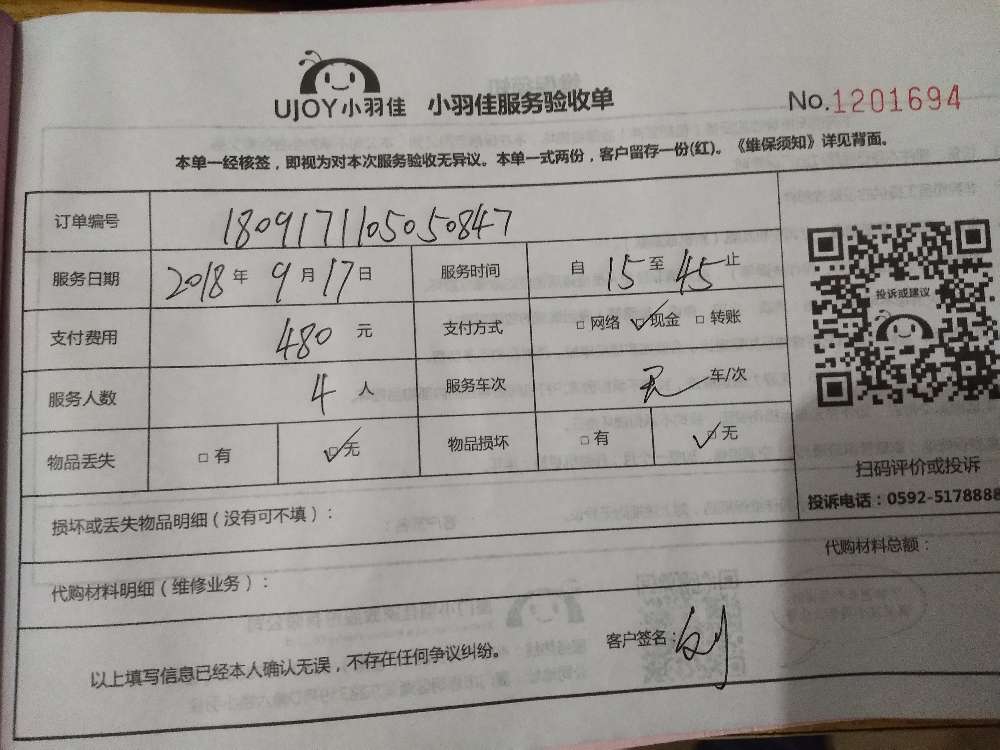 UJOY小羽佳 小羽佳服务验收单 No.1201694
本单一经核签，即视为对本次服务验收无异议。本单一式两份，客户留存一份(红)。《维保须知》详见背面。
订单编号 180917110505084​7
服务日期 2018年 9月17日 服务时间 自 15 至 45 止
支付费用 480 元 支付方式 □ 网络 ☑ 现金 □ 转账
服务人数 4 人 服务车次 无 车/次
物品丢失 □ 有 ☑ 无 物品损坏 □ 有 ☑ 无
投诉或建议
扫码评价或投诉
投诉电话：0592-5178888
损坏或丢失物品明细（没有可不填）：
代购材料明细（维修业务）： 代购材料总额：
以上填写信息已经本人确认无误，不存在任何争议纠纷。 客户签名：